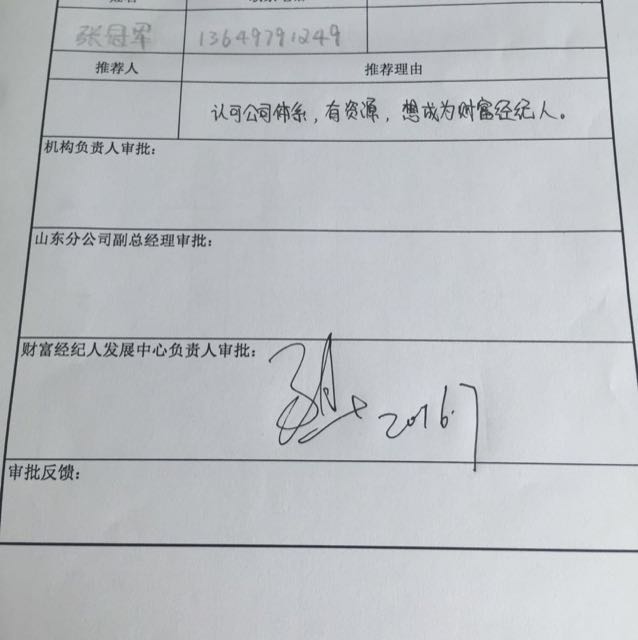 张冠军 13649791249
推荐人 推荐理由
认可公司体系，有资源，想成为财富经纪人。
机构负责人审批：
山东分公司副总经理审批：
财富经纪人发展中心负责人审批：
2016.7
审批反馈：